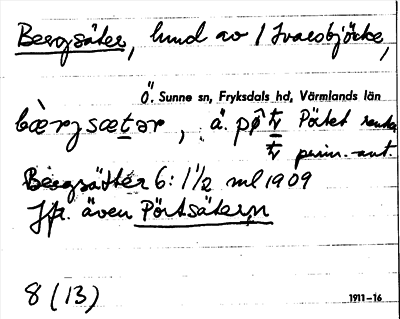 Bergsäter, hmd av 1 Ivarsbjörke,
Ö. Sunne sn, Fryksdals hd, Värmlands län
bæ̀rjsætər, ä. på
Pörtet
prim.-ant.
Bergsätter 6: 1 1/2 ml 1909
Jfr. även Pörtsätern
8 (13)
1911–16